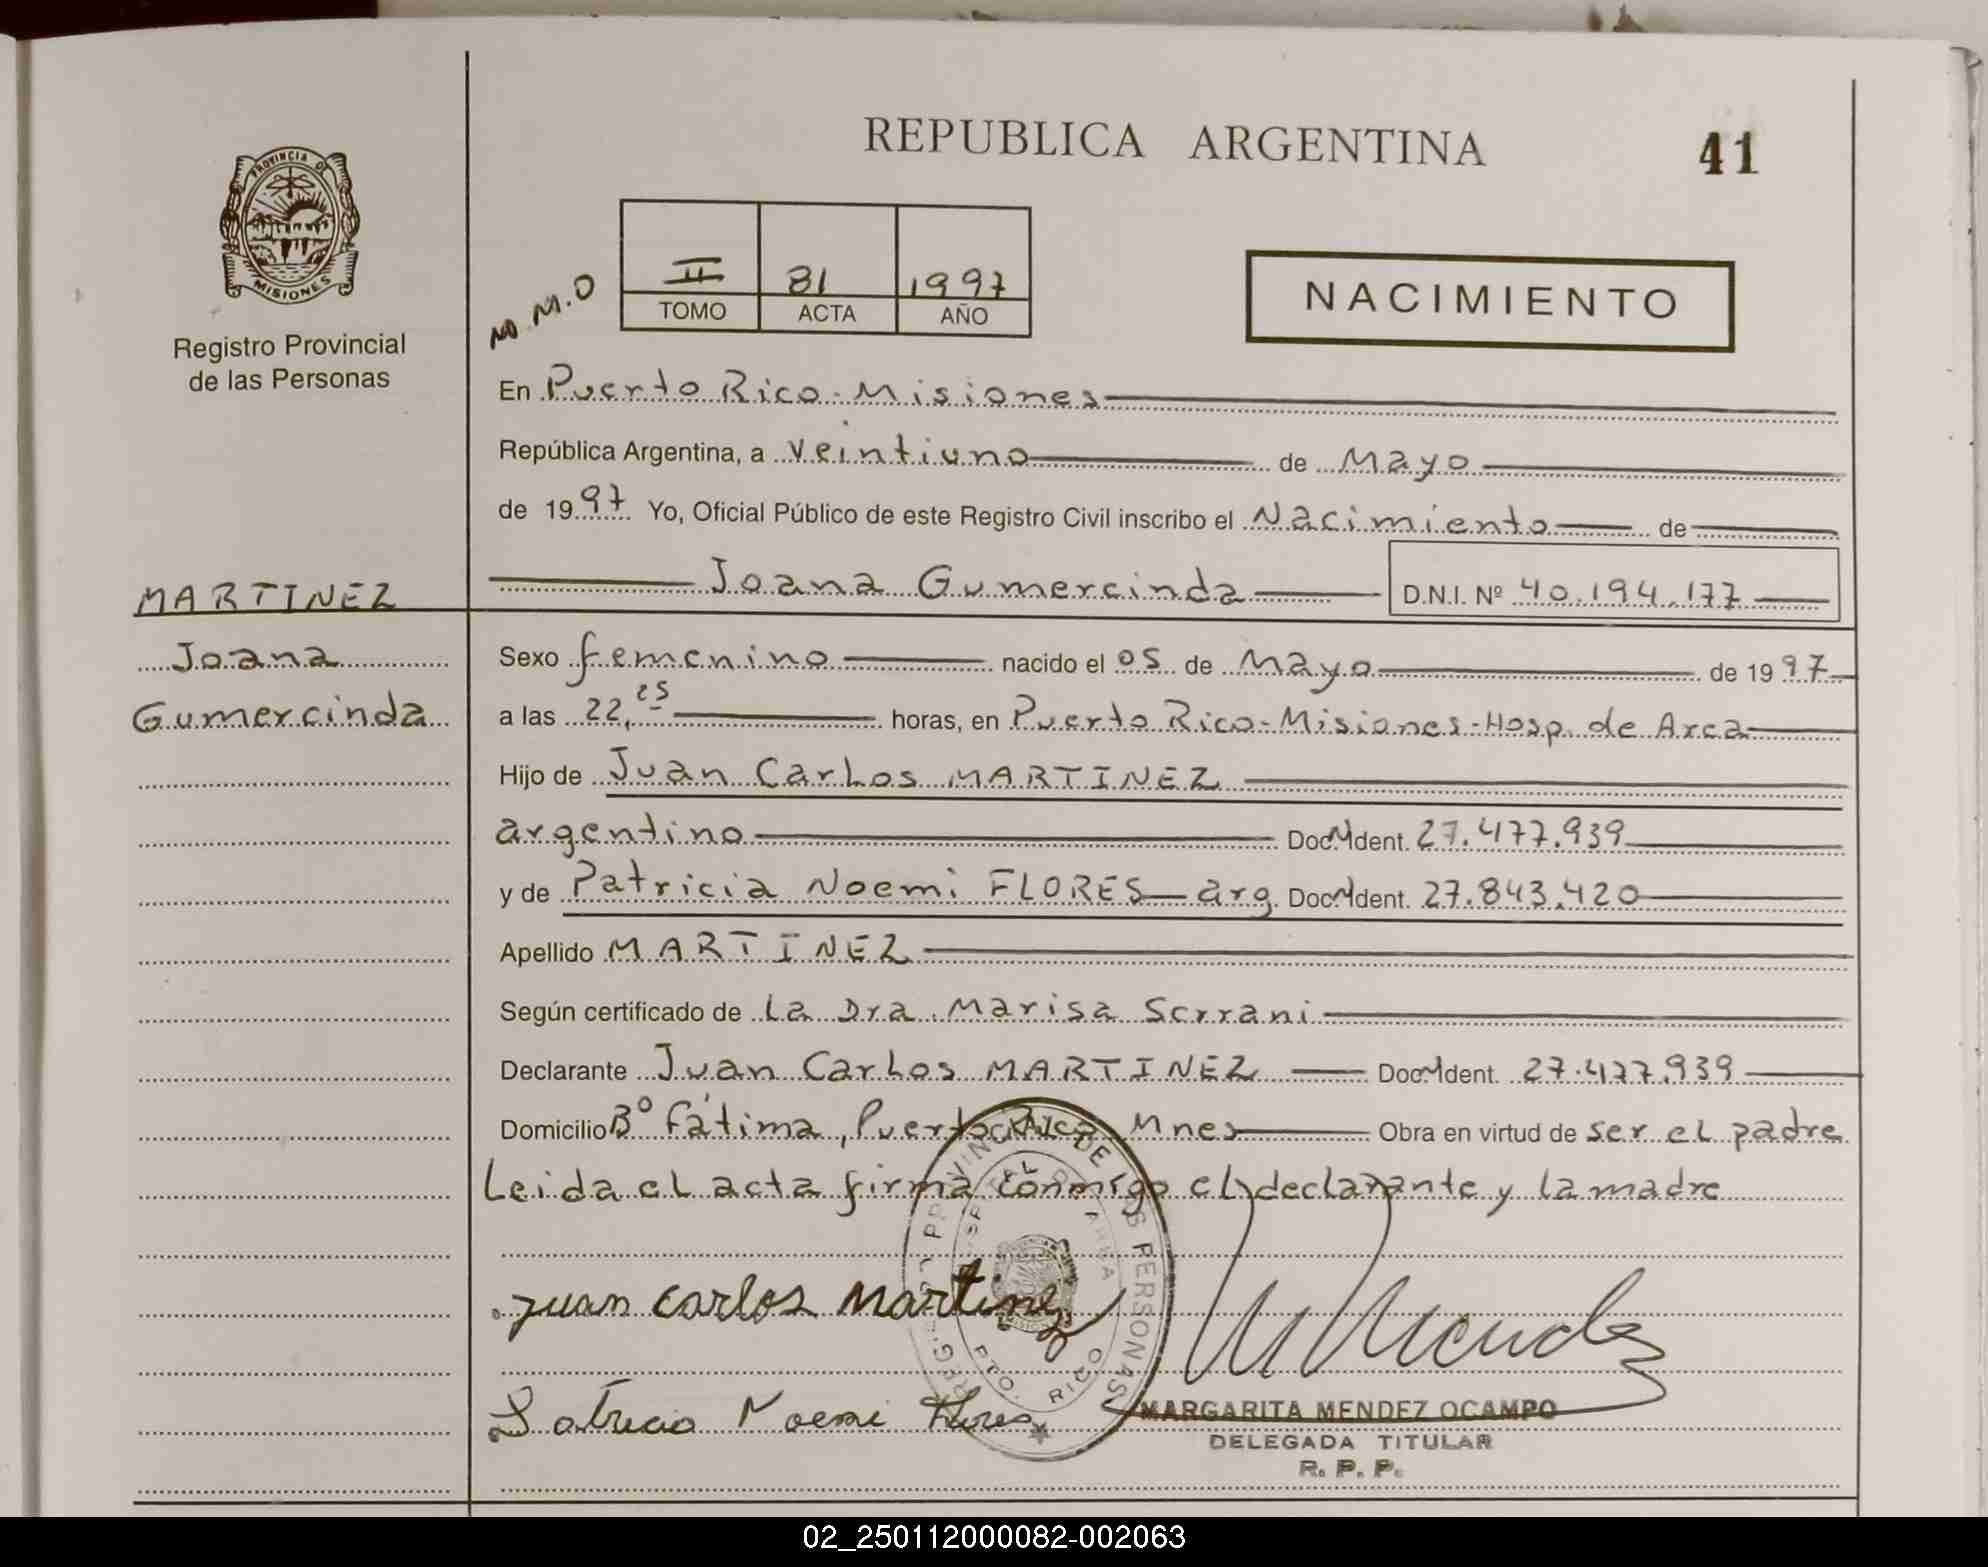 REPUBLICA ARGENTINA
41
PROVINCIA DE
MISIONES
Registro Provincial
de las Personas
No M.O
II 81 1997
TOMO ACTA AÑO
NACIMIENTO
En Puerto Rico - Misiones
República Argentina, a veintiuno de Mayo
de 1997 Yo, Oficial Público de este Registro Civil inscribo el Nacimiento de
Joana Gumercinda D.N.I. Nº 40.194.177
MARTINEZ
Joana
Gumercinda
Sexo femenino nacido el 05 de Mayo de 1997
a las 22,25 horas, en Puerto Rico - Misiones - Hosp. de Area
Hijo de Juan Carlos MARTINEZ
argentino Doc. Ident. 27.477.939
y de Patricia Noemi FLORES arg. Doc. Ident. 27.843.420
Apellido MARTINEZ
Según certificado de La Dra. Marisa Serrani
Declarante Juan Carlos MARTINEZ Doc. Ident. 27.477.939
Domicilio Bº Fátima, Puerto Rico Mnes Obra en virtud de ser el padre
Leida el acta firma conmigo el declarante y la madre
PERSONAS
PTO. RICO
Juan Carlos Martinez
M Mendez
Patricia Noemi Flores
MARGARITA MENDEZ OCAMPO
DELEGADA TITULAR
R. P. P.
02_250112000082-002063